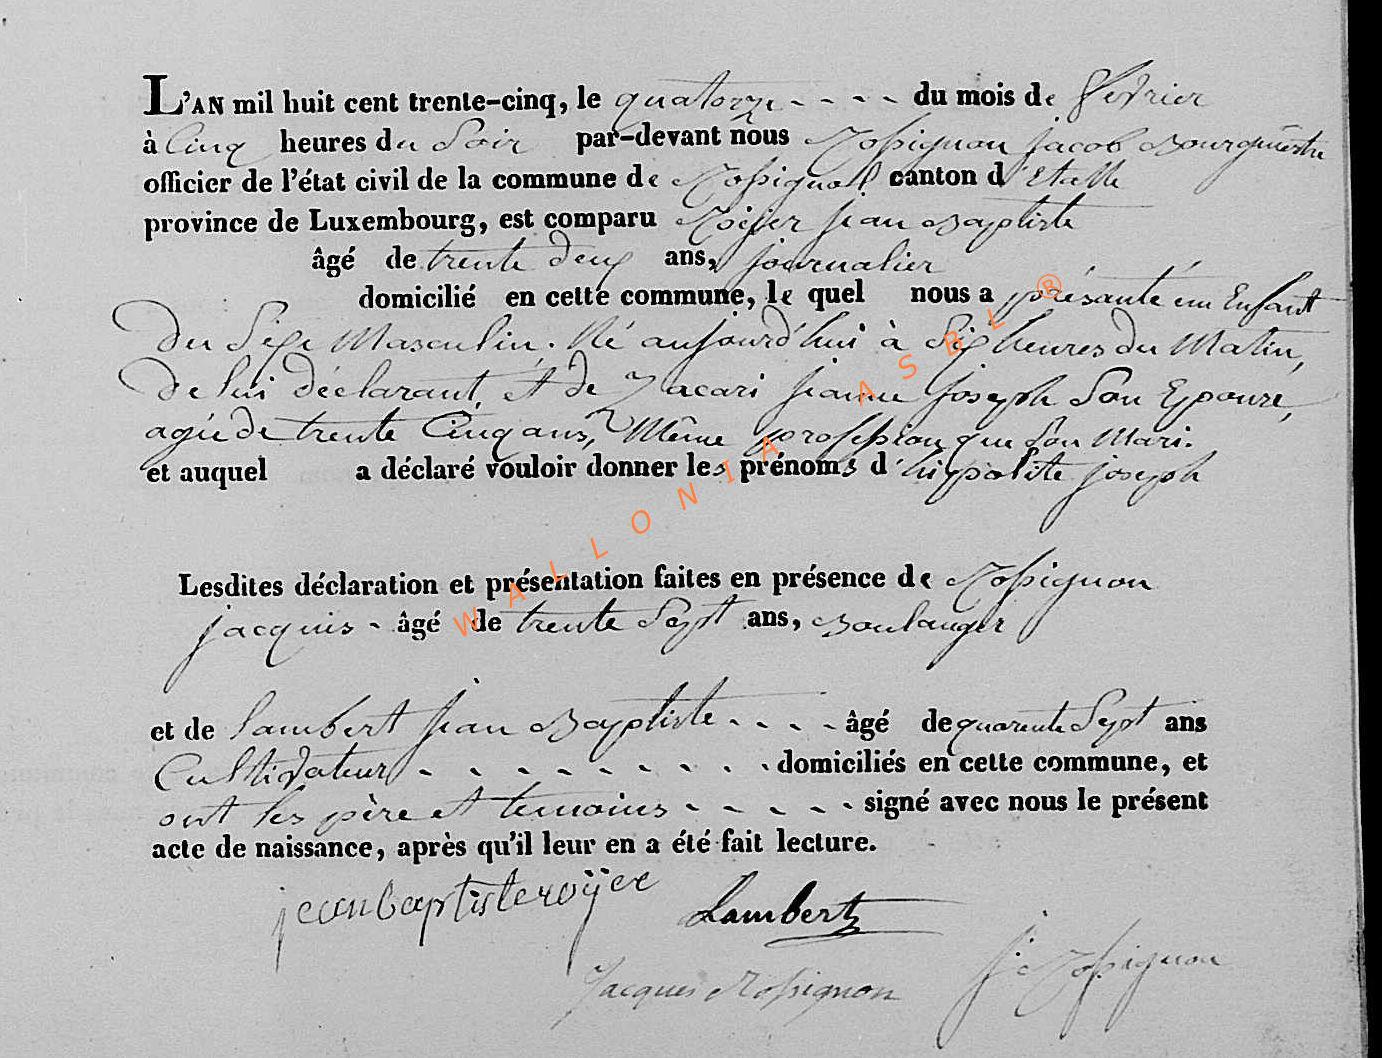 L'AN mil huit cent trente-cinq, le quatorze - - - - du mois de fevrier
à Cinq heures du Soir par-devant nous Rossignon jacob Bourguéstre
officier de l'état civil de la commune de Rossignol canton d'Etalle
province de Luxembourg, est comparu Roijer jean Baptiste
âgé de trente deux ans, journalier
domicilié en cette commune, le quel nous a présanté un Enfant
du Sexe Masculin. Né aujourd'hui à Six heures du Matin,
de lui déclarant, et de Zacari jeanne joseph Son Epouse,
agée de trente Cinq ans, Même profession que Son Mari.
et auquel a déclaré vouloir donner les prénoms d'hippolite joseph
Lesdites déclaration et présentation faites en présence de Rossignon
jacques - âgé de trente Sept ans, Boulanger
et de lambert jean Baptiste - - - - âgé de quarente Sept ans
Cultivateur - - - - - - - - - domiciliés en cette commune, et
ont les père et temoins - - - - - signé avec nous le présent
acte de naissance, après qu'il leur en a été fait lecture.
jean baptiste roijer
Lambert
Jacques Rossignon
j. Rossignon
WALLONIA ASBL ®